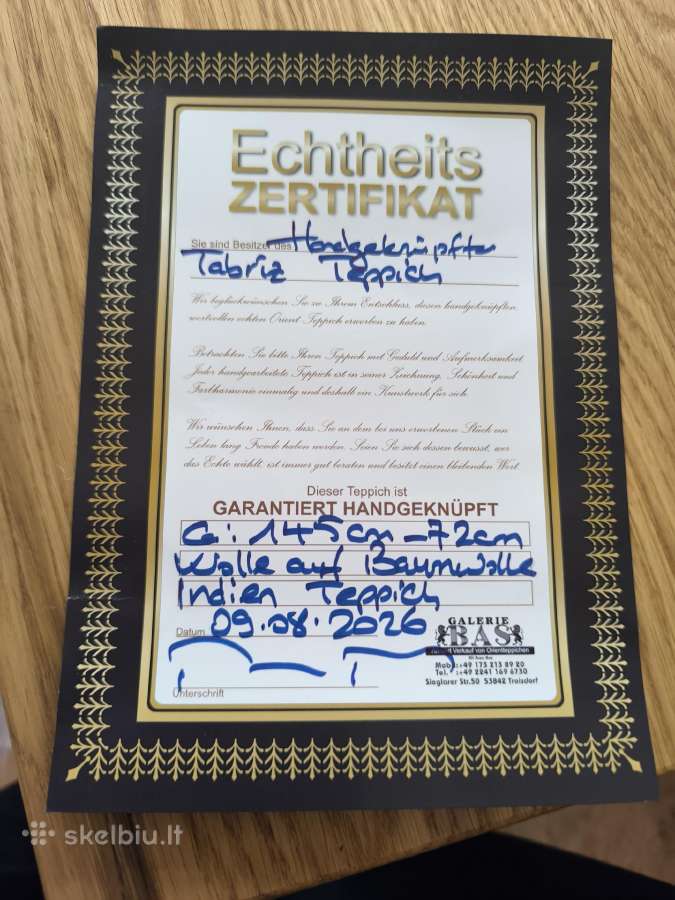 Echtheits
ZERTIFIKAT
Sie sind Besitzer des Handgeknüpfter
Tabriz Teppich
Wir beglückwünschen Sie zu Ihrem Entschluss, diesen handgeknüpften,
wertvollen echten Orient-Teppich erworben zu haben.
Betrachten Sie bitte Ihren Teppich mit Geduld und Aufmerksamkeit.
Jeder handgearbeitete Teppich ist in seiner Zeichnung, Schönheit und
Farbharmonie einmalig und deshalb ein Kunstwerk für sich.
Wir wünschen Ihnen, dass Sie an dem bei uns erworbenen Stück ein
Leben lang Freude haben werden. Seien Sie sich dessen bewusst, wer
das Echte wählt, ist immer gut beraten und besitzt einen bleibenden Wert.
Dieser Teppich ist
GARANTIERT HANDGEKNÜPFT
Ca: 145cm-72cm
Wolle auf Baumwolle
Indien Teppich
Datum 09.08.2026
GALERIE
BAS
Verkauf von Orientteppichen
Mob.:+49 173 213 89 20
Tel. :+49 2241 169 6730
Sieglarer Str.50 53842 Troisdorf
Unterschrift
skelbiu.lt